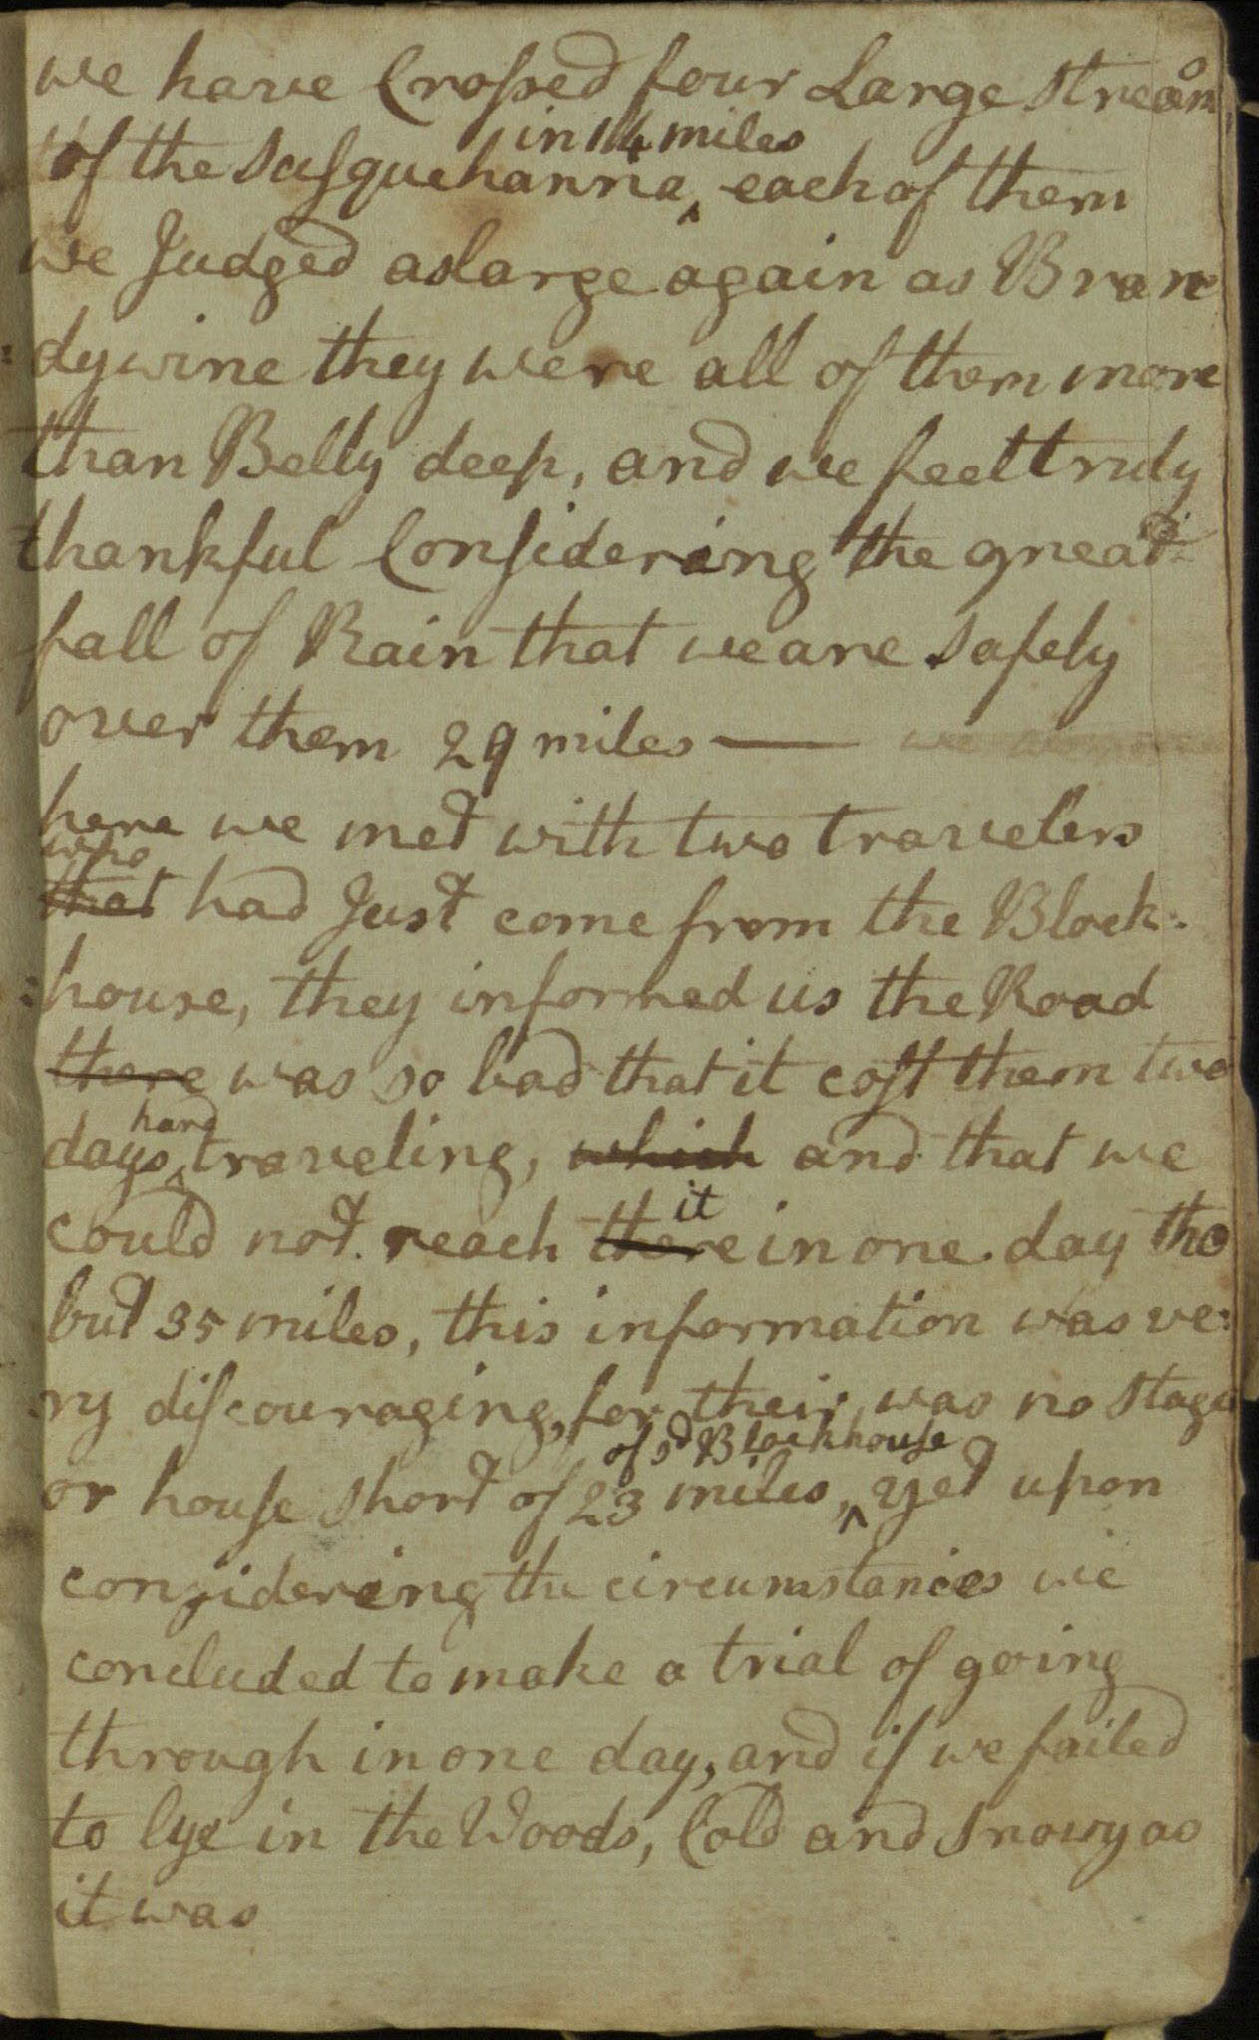 we have Crossed four Large streams
of the Susquehanna ^in 14 miles each of them
we Judged as large again as Bran
dywine they were all of them more
than Belly deep, and we feel truly
thankful Considering the great
fall of Rain that we are safely
over them 29 miles —
here we met with two travelers
~~that~~ who had Just come from the Block:
:house, they informed us the Road
~~there~~ was so bad that it cost them two
days ^hard traveling, ~~which~~ and that we
could not reach ~~there~~ it in one day tho
but 35 miles, this information was ve:
ry discouraging, for their was no stage
or house short of 23 miles, ^of sd Blockhouse yet upon
considering the circumstances we
concluded to make a trial of going
through in one day, and if we failed
to lye in the Woods, Cold and Snowy as
it was